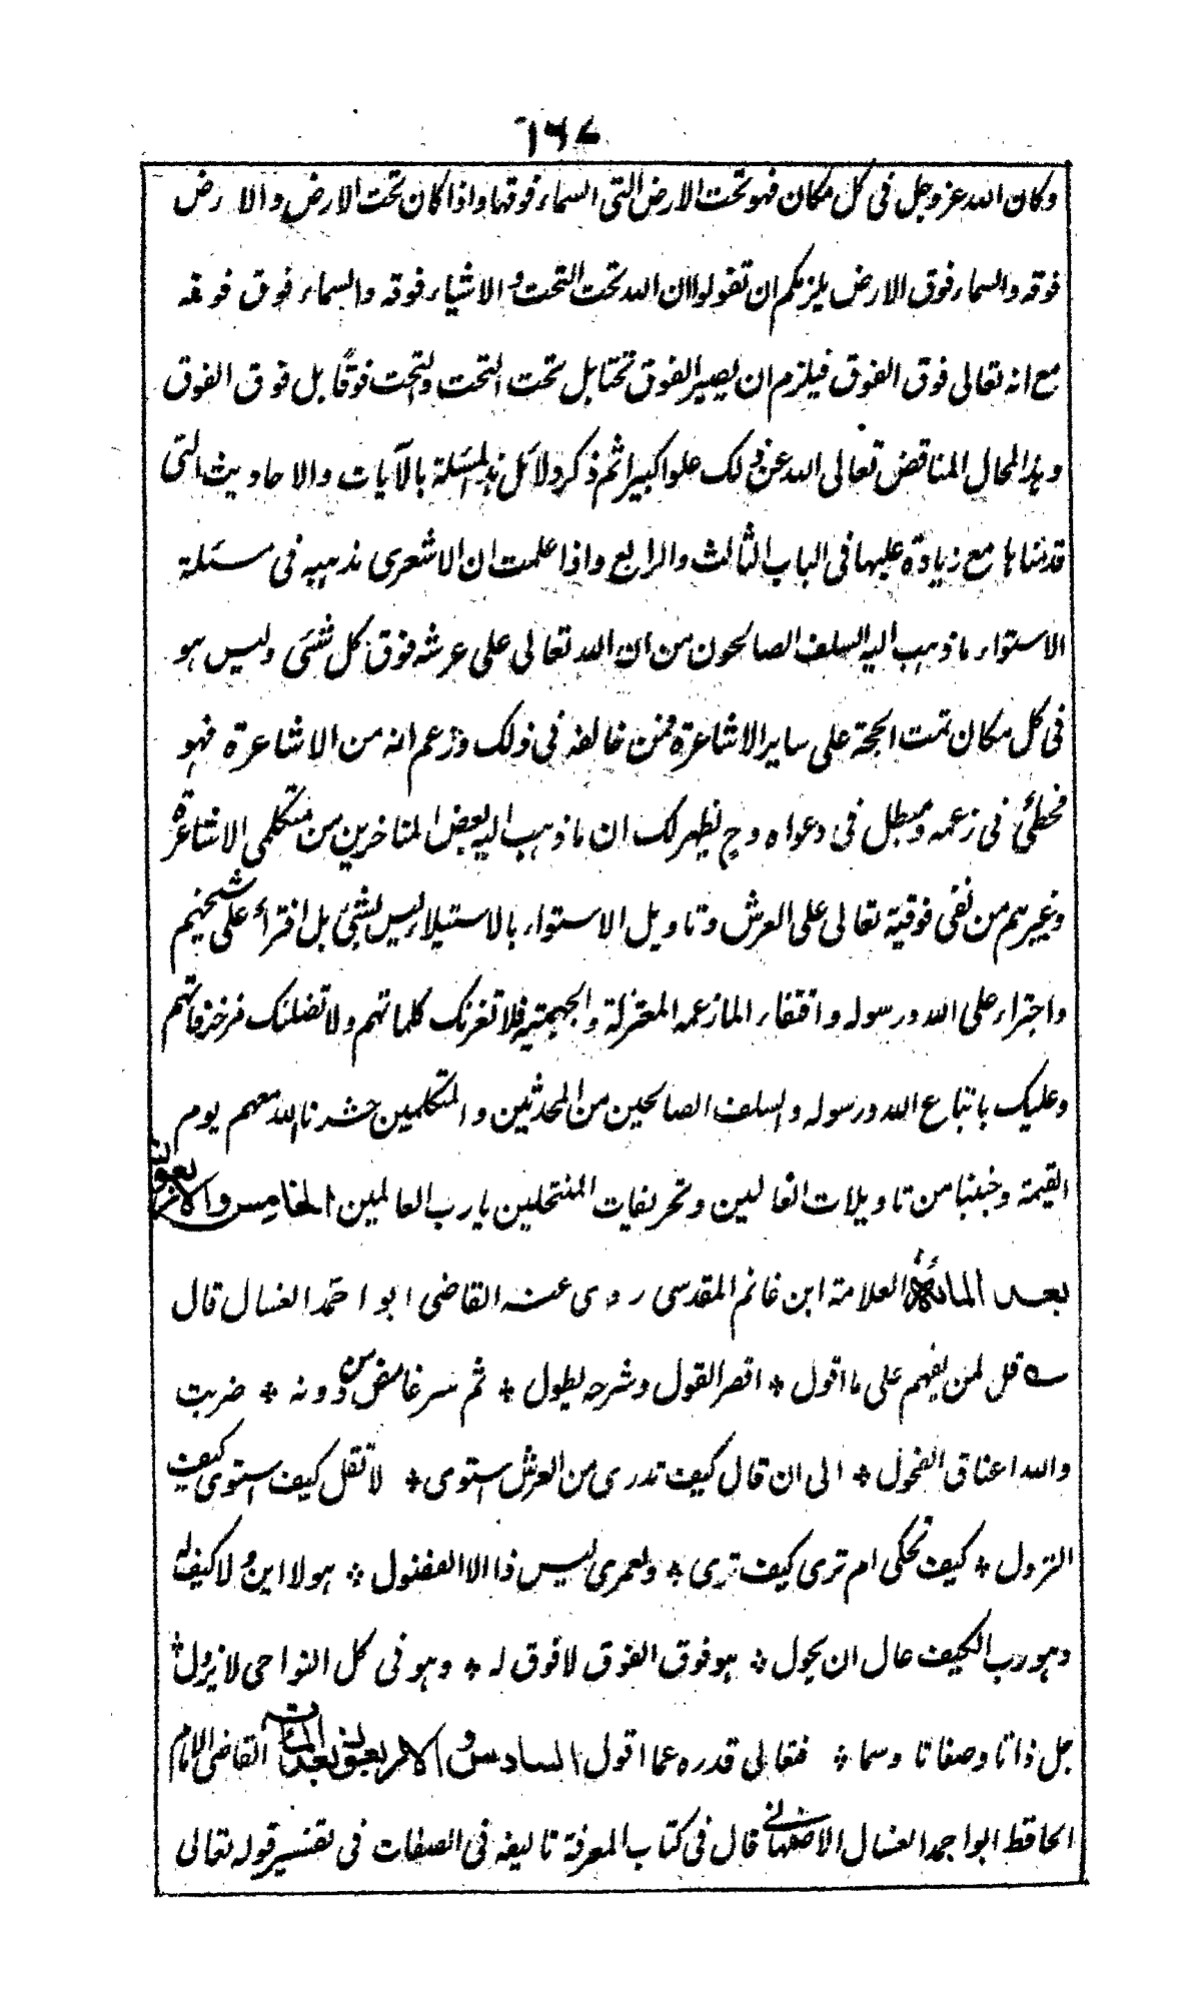 ١٦٧
وكان الله عز وجل فى كل مكان فهو تحت الارض التى السماء فوقها واذا كان تحت الارض والارض
فوقه والسماء فوق الارض يلزمكم ان تقولوا ان الله تحت التحت و الاشياء فوقه والسماء فوق فوقه
مع انه تعالى فوق الفوق فيلزم ان يصير الفوق تحتا بل تحت التحت والتحت فوقًا بل فوق الفوق
وهذا المحال المناقض تعالى الله عن ذلك علوا كبيرا ثم ذكر دلائل هذه المسئلة بالآيات والاحاديث التى
قدمناها مع زيادة عليها فى الباب الثالث والرابع واذا علمت ان الاشعرى مذهبه فى مسئلة
الاستواء ما ذهب اليه السلف الصالحون من ان الله تعالى على عرشه فوق كل شئى وليس هو
فى كل مكان تمت الحجة على ساير الاشاعرة فمن خالفه فى ذلك وزعم انه من الاشاعرة فهو
مخطئ فى زعمه ومبطل فى دعواه وح يظهر لك ان ما ذهب اليه بعض المتاخرين من متكلمى الاشاعرة
وغيرهم من نفى فوقية تعالى على العرش وتاويل الاستواء بالاستيلاء ليس بشئ بل افتراء على شيخهم
واجتراء على الله ورسوله واقتفاء لما زعمه المعتزلة والجهمية فلا تغرنك كلماتهم ولا تضلنك مزخرفاتهم
وعليك باتباع الله ورسوله والسلف الصالحين من المحدثين والمتكلمين حشرنا الله معهم يوم
القيمة وجنبنا من تاويلات الغالين وتحريفات المنتحلين يا رب العالمين الخامس والاربعون
بعد المائة العلامة ابن غانم المقدسى روى عنه القاضى ابو احمد العسال قال
؎ قل لمن يفهم على ما اقول * اقصر القول وشرحه يطول * ثم سر غامض من دونه * ضربت
والله اعناق الفحول * الى ان قال كيف تدرى من العرش استوى * لا تقل كيف استوى كيف
النزول * كيف تحكى ام ترى كيف ترى * ولعمرى ليس ذا الا الفضول * هو لا اين ولا كيف له
وهو رب الكيف عال ان يحول * هو فوق الفوق لا فوق له * وهو فى كل النواحى لا يزول *
جل ذاتا وصفاتا وسما * فتعالى قدره عما اقول السادس والاربعون بعد المائة القاضى الامام
الحافظ ابو احمد العسال الاصفهانى قال فى كتاب المعرفة تاليفه فى الصفات فى تفسير قوله تعالى